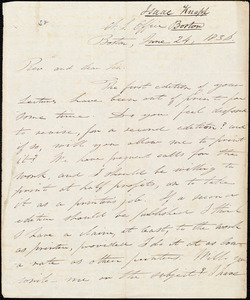 Isaac Knapp
Boston
Boston, June 24, 1836.
Rev and dear Sir
The first edition of your
Lectures have been out of print for
some time. Do you feel disposed
to revise, for a second edition? and
if so, will you allow me to print
it? We have frequent calls for the
work, and I should be willing to
print at half profits, or to take
it as a printer's job. If a second
edition should be published I think
I have a claim, at least, to the work
as printer, provided I do it at as low
a rate as other printers. Will you
write me on the subject? I have